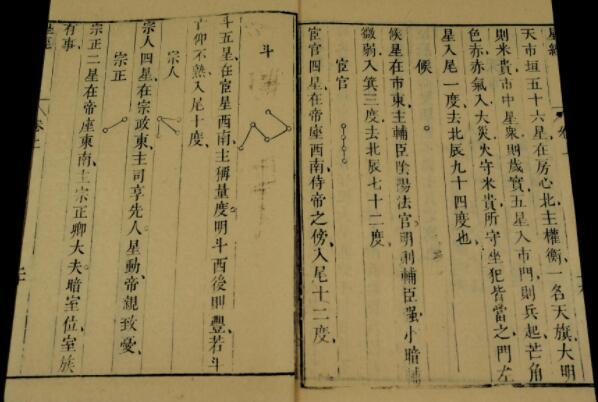 星經
天市垣五十六星在房心北主權衡一名天旗大明
則米貴市中星衆則歲實五星入市門則兵起芒角
色赤氣入大災火守米貴所守坐犯皆當之門左
星入尾一度去北辰九十四度也
候
候星在市東主輔臣陰陽法官明則輔臣强小暗輔
微弱入箕三度去北辰七十二度
宦官
宦官四星在帝座西南侍帝之傍入尾十二度
斗
斗五星在宦星西南主稱量度明斗西後則豐若斗
仰不熟入尾十度
宗人
宗人四星在宗政東主司享先人星動帝親致憂
宗正
宗正二星在帝座東南主宗正卿大夫暗室位室族
有事